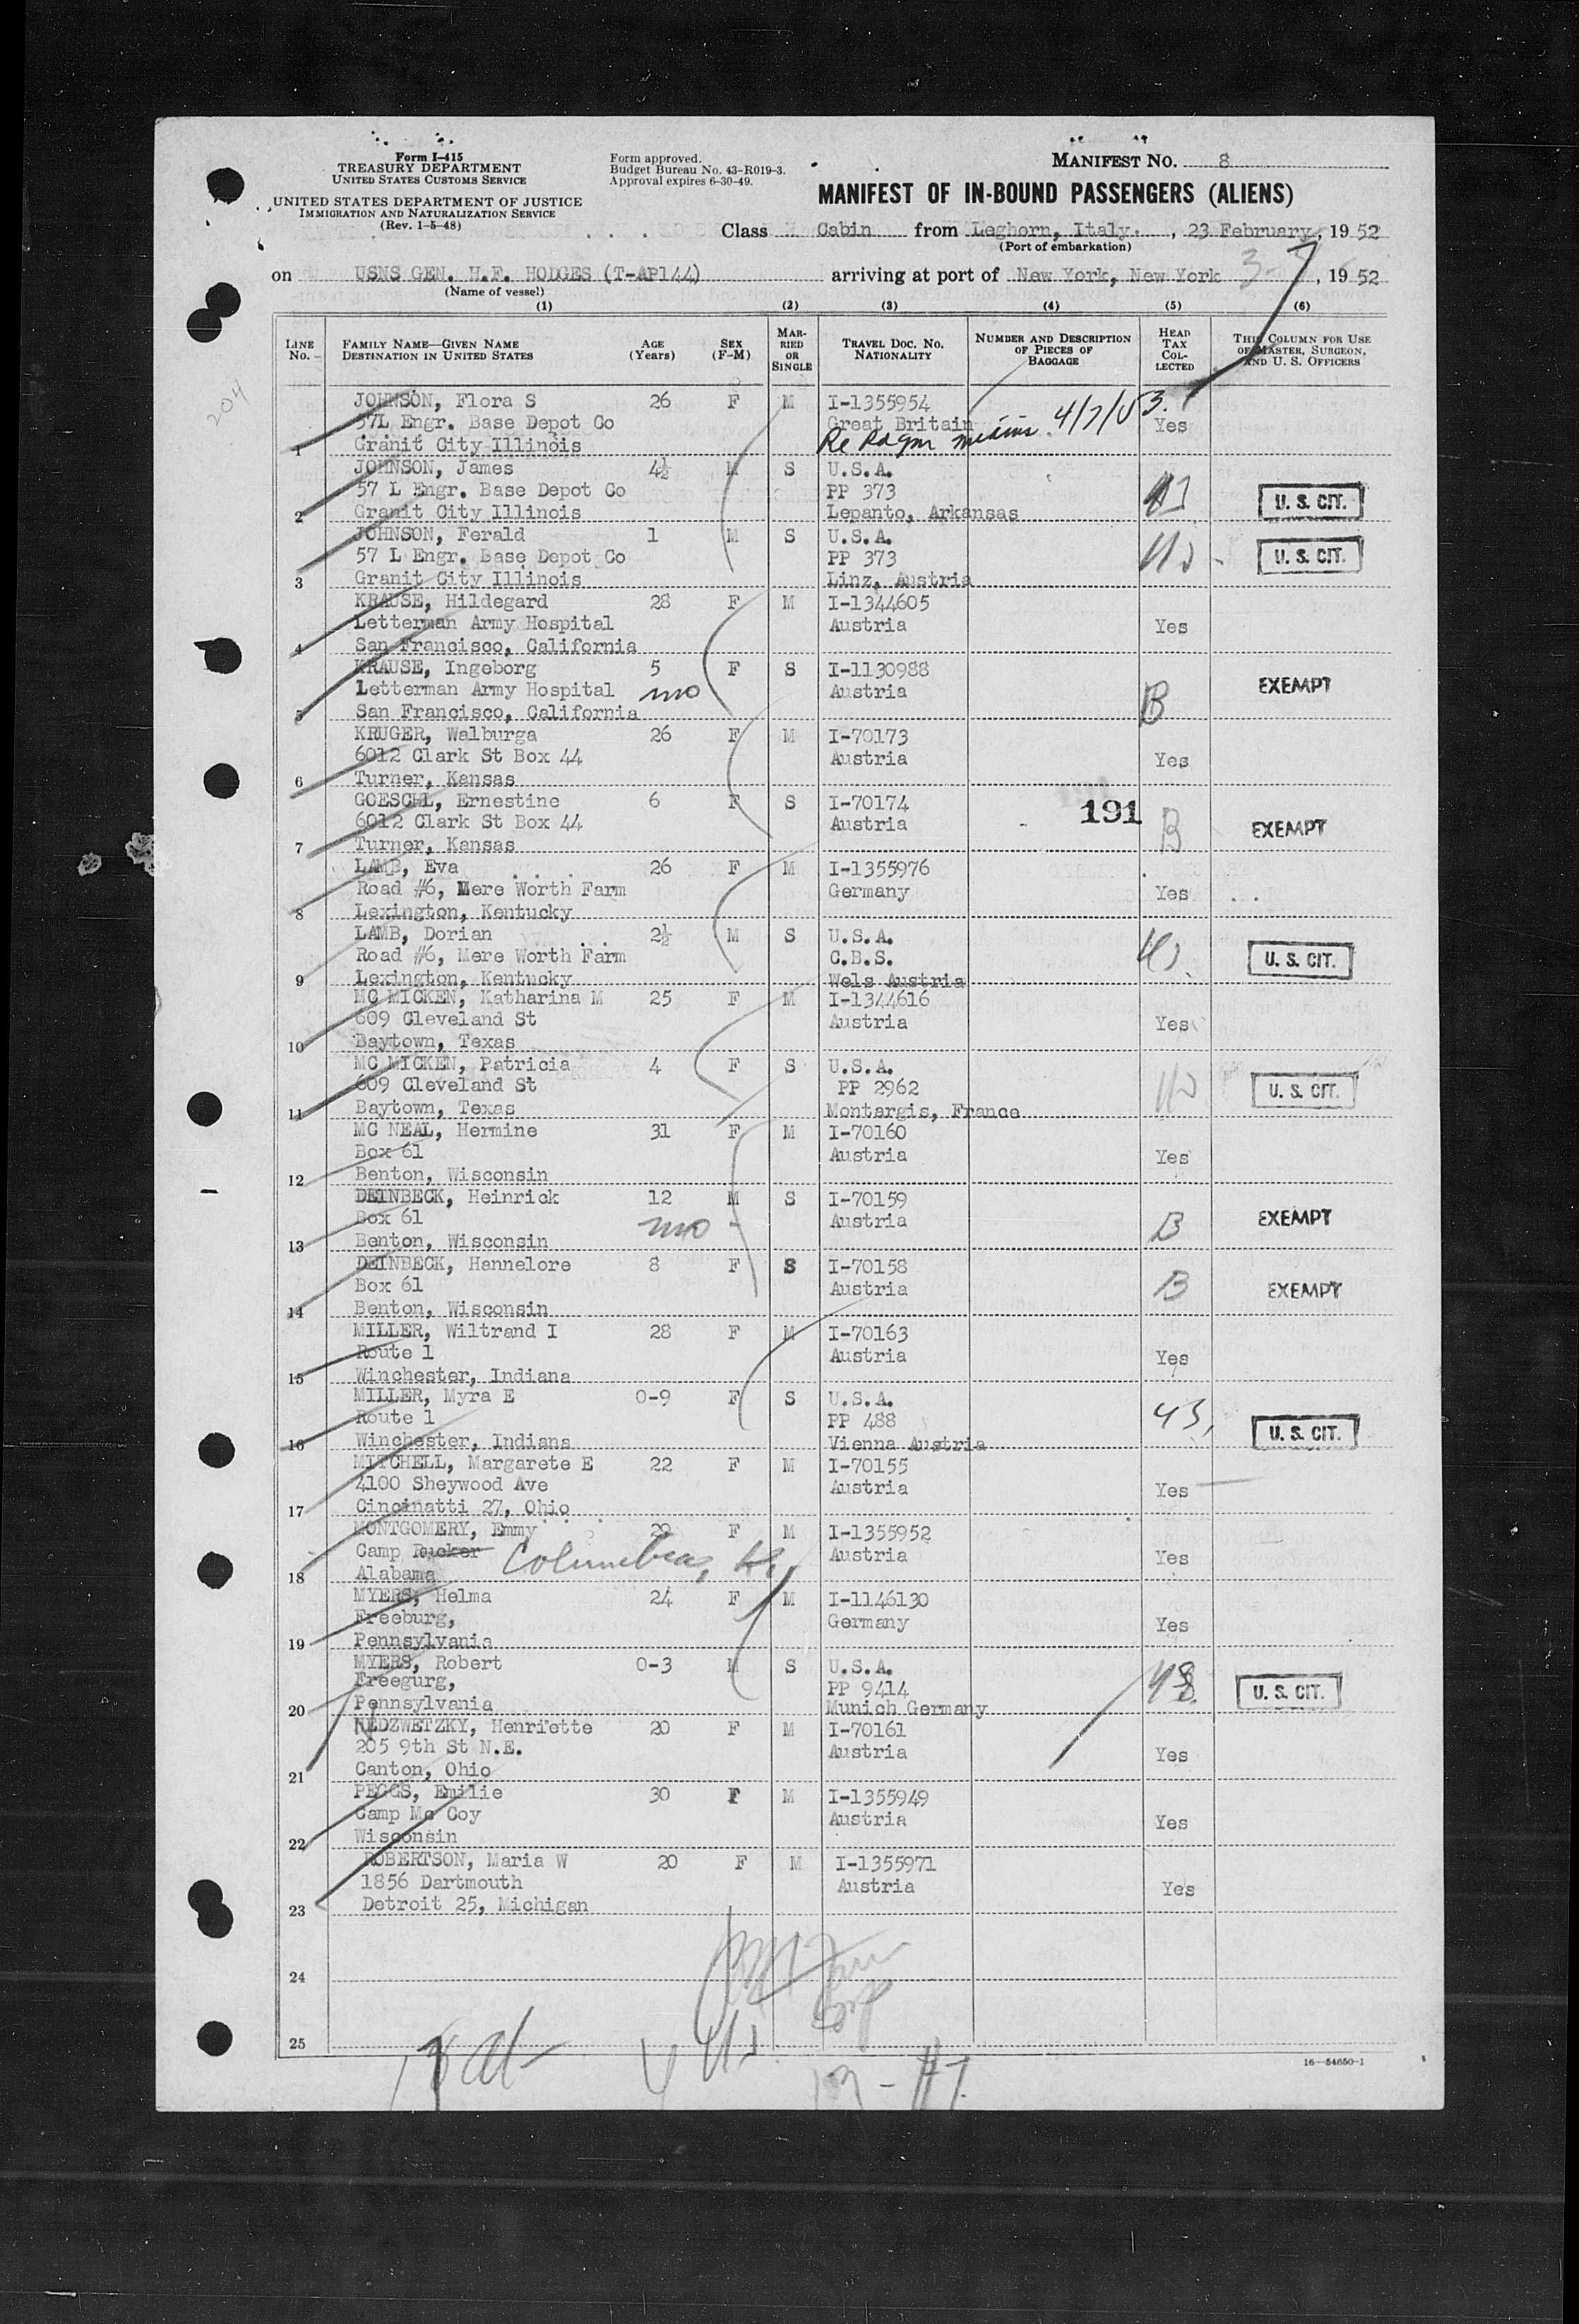 Form I-415
TREASURY DEPARTMENT
UNITED STATES CUSTOMS SERVICE
UNITED STATES DEPARTMENT OF JUSTICE
IMMIGRATION AND NATURALIZATION SERVICE
(Rev. 1-5-48)
Form approved.
Budget Bureau No. 43-R019-3.
Approval expires 6-30-49.
MANIFEST NO. 8
MANIFEST OF IN-BOUND PASSENGERS (ALIENS)
Class Cabin from Leghorn, Italy. , 23 February, 1952
(Port of embarkation)
on USNS GEN. H.F. HODGES (T-AP144) arriving at port of New York, New York 3-7, 1952
(Name of vessel)
(1) (2) (3) (4) (5) (6)
LINE No. FAMILY NAME—GIVEN NAME DESTINATION IN UNITED STATES AGE (Years) SEX (F-M) MARRIED OR SINGLE TRAVEL DOC. NO. NATIONALITY NUMBER AND DESCRIPTION OF PIECES OF BAGGAGE HEAD TAX COLLECTED THIS COLUMN FOR USE OF MASTER, SURGEON, AND U. S. OFFICERS
204
JOHNSON, Flora S 26 F M I-1355954
57L Engr. Base Depot Co Great Britain 4/7/53. Yes
1 Granit City Illinois Re
JOHNSON, James 4½ M S U.S.A.
57 L Engr. Base Depot Co PP 373 U. S. CIT.
2 Granit City Illinois Lepanto, Arkansas
JOHNSON, Ferald 1 M S U.S.A.
57 L Engr. Base Depot Co PP 373 U. S. CIT.
3 Granit City Illinois Linz, Austria
KRAUSE, Hildegard 28 F M I-1344605
Letterman Army Hospital Austria Yes
4 San Francisco, California
KRAUSE, Ingeborg 5 F S I-1130988
Letterman Army Hospital mo Austria B EXEMPT
5 San Francisco, California
KRUGER, Walburga 26 F M I-70173
6012 Clark St Box 44 Austria Yes
6 Turner, Kansas
GOESCHL, Ernestine 6 F S I-70174 191
6012 Clark St Box 44 Austria B EXEMPT
7 Turner, Kansas
LAMB, Eva 26 F M I-1355976
Road #6, Mere Worth Farm Germany Yes
8 Lexington, Kentucky
LAMB, Dorian 2½ M S U.S.A.
Road #6, Mere Worth Farm C.B.S. U. S. CIT.
9 Lexington, Kentucky Wels Austria
MC MICKEN, Katharina M 25 F M I-1344616
609 Cleveland St Austria Yes
10 Baytown, Texas
MC MICKEN, Patricia 4 F S U.S.A.
609 Cleveland St PP 2962 U. S. CIT.
11 Baytown, Texas Montargis, France
MC NEAL, Hermine 31 F M I-70160
Box 61 Austria Yes
12 Benton, Wisconsin
DEINBECK, Heinrick 12 M S I-70159
Box 61 mo Austria B EXEMPT
13 Benton, Wisconsin
DEINBECK, Hannelore 8 F S I-70158
Box 61 Austria B EXEMPT
14 Benton, Wisconsin
MILLER, Wiltrand I 28 F M I-70163
Route 1 Austria Yes
15 Winchester, Indiana
MILLER, Myra E 0-9 F S U.S.A.
Route 1 PP 488 U. S. CIT.
16 Winchester, Indiana Vienna Austria
MITCHELL, Margarete E 22 F M I-70155
4100 Sheywood Ave Austria Yes
17 Cincinatti 27, Ohio
MONTGOMERY, Emmy 22 F M I-1355952
Camp Rucker Columbia, Ky Austria Yes
18 Alabama
MYERS, Helma 24 F M I-1146130
Freeburg, Germany Yes
19 Pennsylvania
MYERS, Robert 0-3 M S U.S.A.
Freegurg, PP 9414 U. S. CIT.
20 Pennsylvania Munich Germany
NEDZWETZKY, Henriette 20 F M I-70161
205 9th St N.E. Austria Yes
21 Canton, Ohio
PEGGS, Emilie 30 F M I-1355949
Camp Mc Coy Austria Yes
22 Wisconsin
ROBERTSON, Maria W 20 F M I-1355971
1856 Dartmouth Austria Yes
23 Detroit 25, Michigan
24
25
16—54650-1